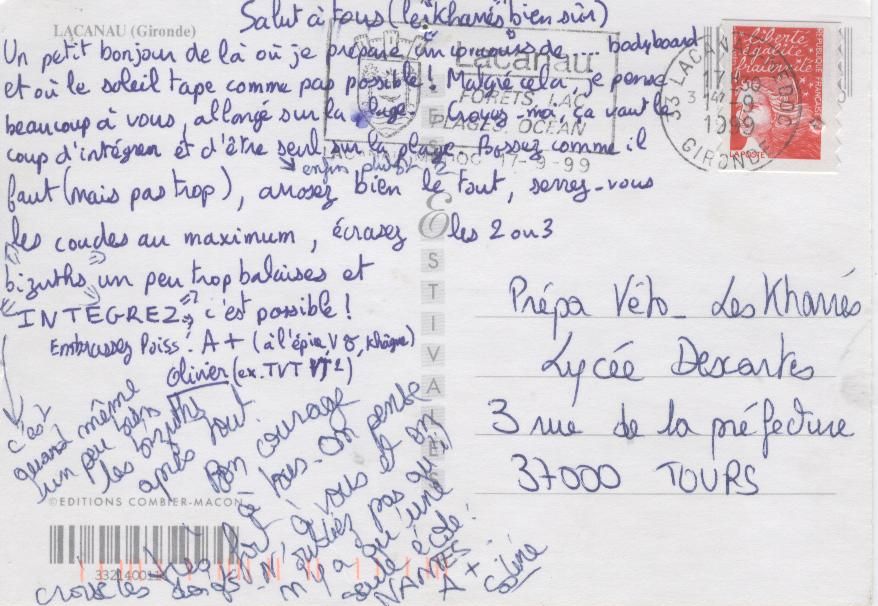 Salut à tous (les Kharrés bien sûr)
LACANAU (Gironde)
Un petit bonjour de là où je prépare un concours de .... bodyboard
et où le soleil tape comme pas possible! Malgré cela, je pense
beaucoup à vous, allongé sur la plage. Croyez-moi, ça vaut le
coup d'intégrer et d'être seul sur la plage. Bossez comme il
enfin plutôt 2
faut (mais pas trop), arrosez bien le tout, serrez-vous
les coudes au maximum, écrasez les 2 ou 3
bizuths un peu trop balaises et
INTEGREZ : c'est possible!
Embrassez Poiss. A+ (à l'épice V8, Khâgne)
Olivier (ex. TVT 2)
c'est
quand même
un peu bien
les bizuths
après tout
Bon courage
à tous. On pense
à vous et on
croise les doigts
N'oubliez pas qu'il
n'y a qu'une
seule école:
NANTES
A+
Céline
©EDITIONS COMBIER-MACON
Lacanau
FORETS, LAC
PLAGES, OCEAN
17-9-99
33 LACANAU MEDOC
17H30
17-9
1999
GIRONDE
liberté
égalité
fraternité
REPUBLIQUE FRANÇAISE
LA POSTE
ESTIVALES
Prépa Véto - Les Kharrés
Lycée Descartes
3 rue de la préfecture
37000 TOURS